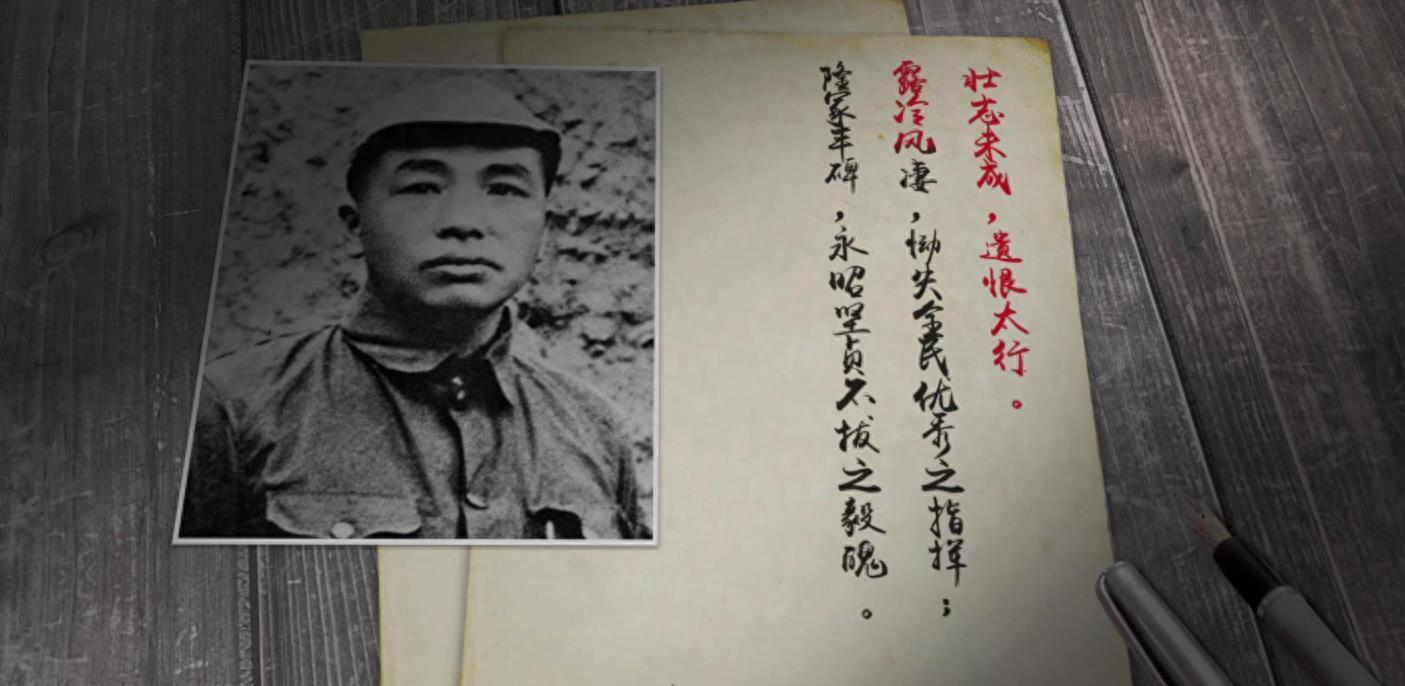 壮志未成，遗恨太行。
露冷风凄，恸失全民优秀之指挥；
隆冢丰碑，永昭坚贞不拔之毅魄。